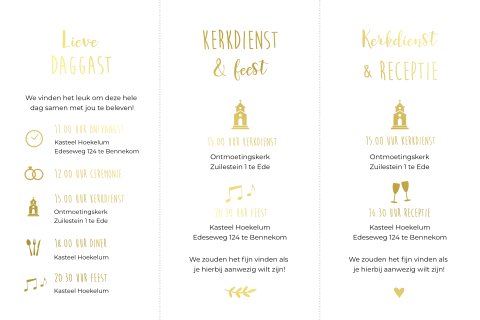 Lieve
DAGGAST
We vinden het leuk om deze hele
dag samen met jou te beleven!
11.00 UUR ONTVANGST
Kasteel Hoekelum
Edeseweg 124 te Bennekom
12.00 UUR CEREMONIE
15.00 UUR KERKDIENST
Ontmoetingskerk
Zuilestein 1 te Ede
18.00 UUR DINER
Kasteel Hoekelum
20.30 UUR FEEST
Kasteel Hoekelum
KERKDIENST
& feest
15.00 UUR KERKDIENST
Ontmoetingskerk
Zuilestein 1 te Ede
20.30 UUR FEEST
Kasteel Hoekelum
Edeseweg 124 te Bennekom
We zouden het fijn vinden als
je hierbij aanwezig wilt zijn!
Kerkdienst
& RECEPTIE
15.00 UUR KERKDIENST
Ontmoetingskerk
Zuilestein 1 te Ede
16.30 UUR RECEPTIE
Kasteel Hoekelum
Edeseweg 124 te Bennekom
We zouden het fijn vinden als
je hierbij aanwezig wilt zijn!